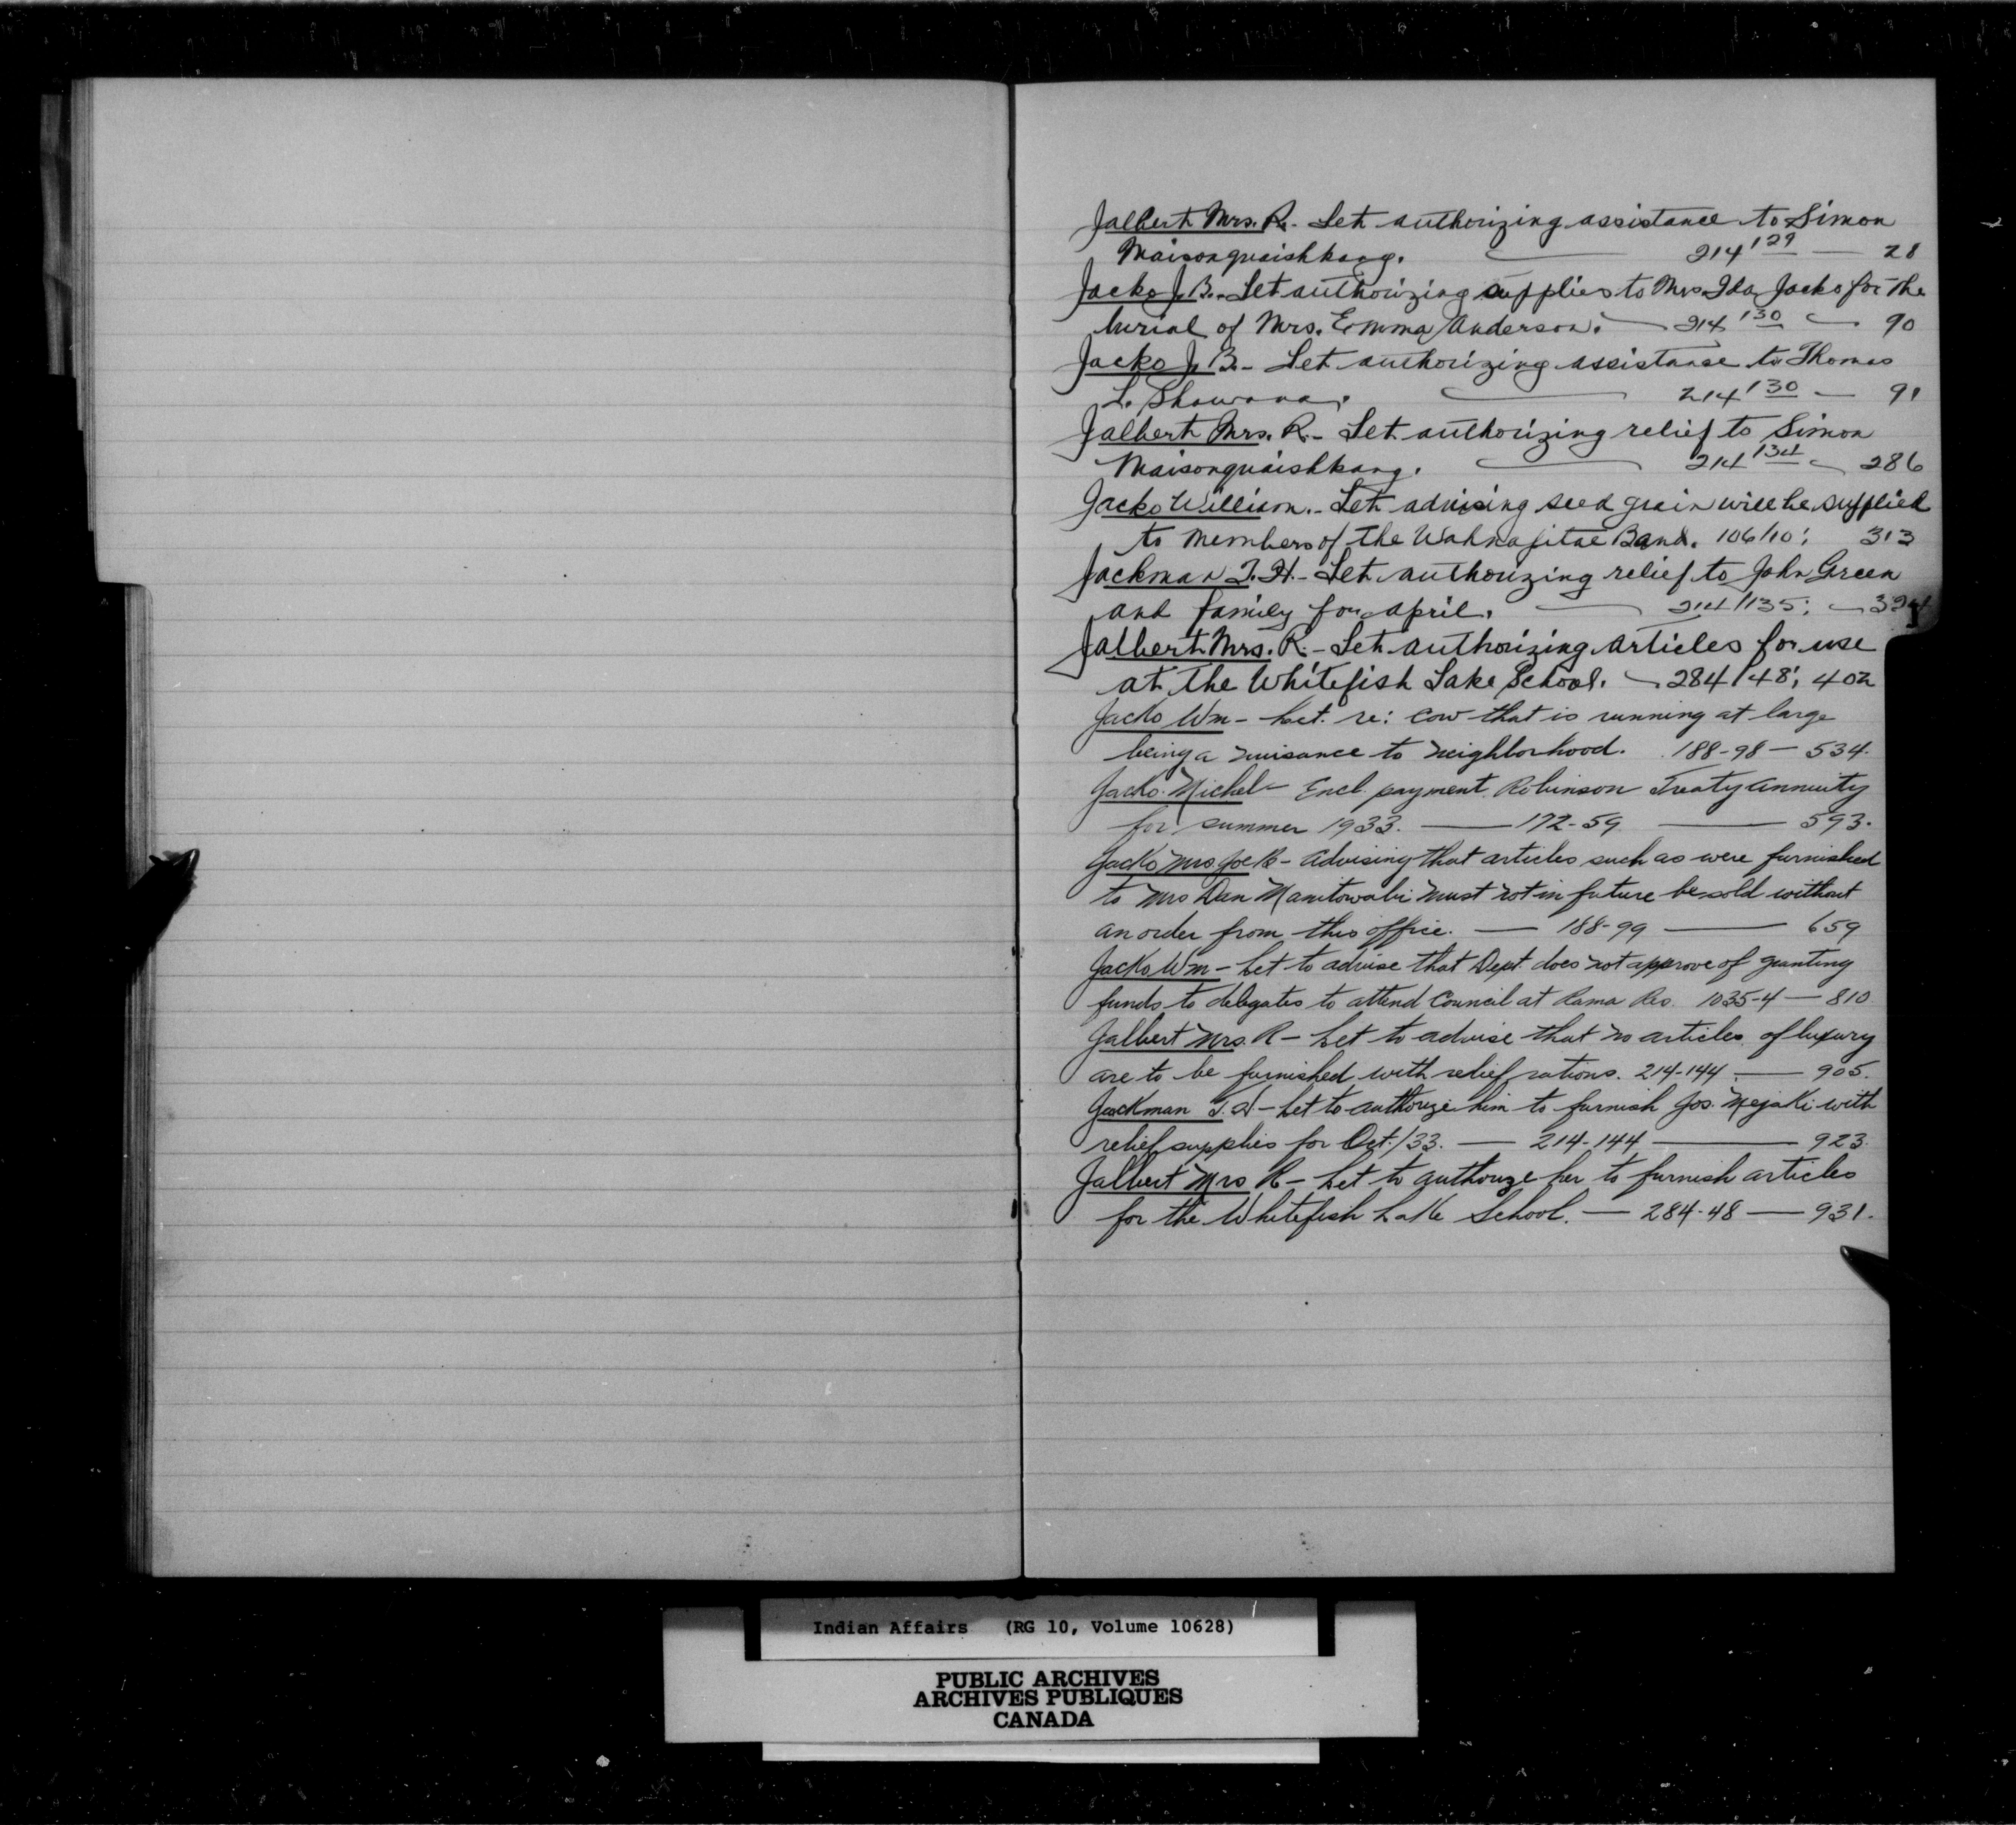 Jalbert Mrs. R. - Let. authorizing assistance to Simon
Maisonquaishkang. 214 129 — 28
Jacko J. B. - Let authorizing supplies to Mrs. Ida Jacko for the
burial of Mrs. Emma Anderson. — 214 130 — 90
Jacko J. B. - Let authorizing assistance to Thomas
L. Shawana. 214 130 — 91
Jalbert Mrs. R. - Let. authorizing relief to Simon
Maisonquaishkang. 214 134 — 286
Jacko William. - Let. advising seed grain will be supplied
to members of the Wahnapitae Band. 106/10; 313
Jackman T. H. - Let. authorizing relief to John Green
and family for April. — 214/135; — 394
Jalbert Mrs. R. - Let. authorizing articles for use
at the Whitefish Lake School. — 284/48; 402
Jacko Wm - Let. re: cow that is running at large
being a nuisance to neighborhood. 188-98 — 534.
Jacko Michel - Encl. payment Robinson Treaty annuity
for summer 1933. — 172-59 — 593.
Jacko Mrs Joe B - Advising that articles such as were furnished
to Mrs Dan Manitowabi must not in future be sold without
an order from this office. — 188-99 — 659
Jacko Wm - Let to advise that Dept. does not approve of granting
funds to delegates to attend Council at Rama Res. 1035-4 — 810
Jalbert Mrs. R - Let to advise that no articles of luxury
are to be furnished with relief rations. 214-144. — 905.
Jackman T. H - Let to authorize him to furnish Jos. Mejaki with
relief supplies for Oct./33. — 214-144 — 923.
Jalbert Mrs R - Let to authorize her to furnish articles
for the Whitefish Lake School. — 284-48 — 931.
J
Indian Affairs (RG 10, Volume 10628)
PUBLIC ARCHIVES
ARCHIVES PUBLIQUES
CANADA